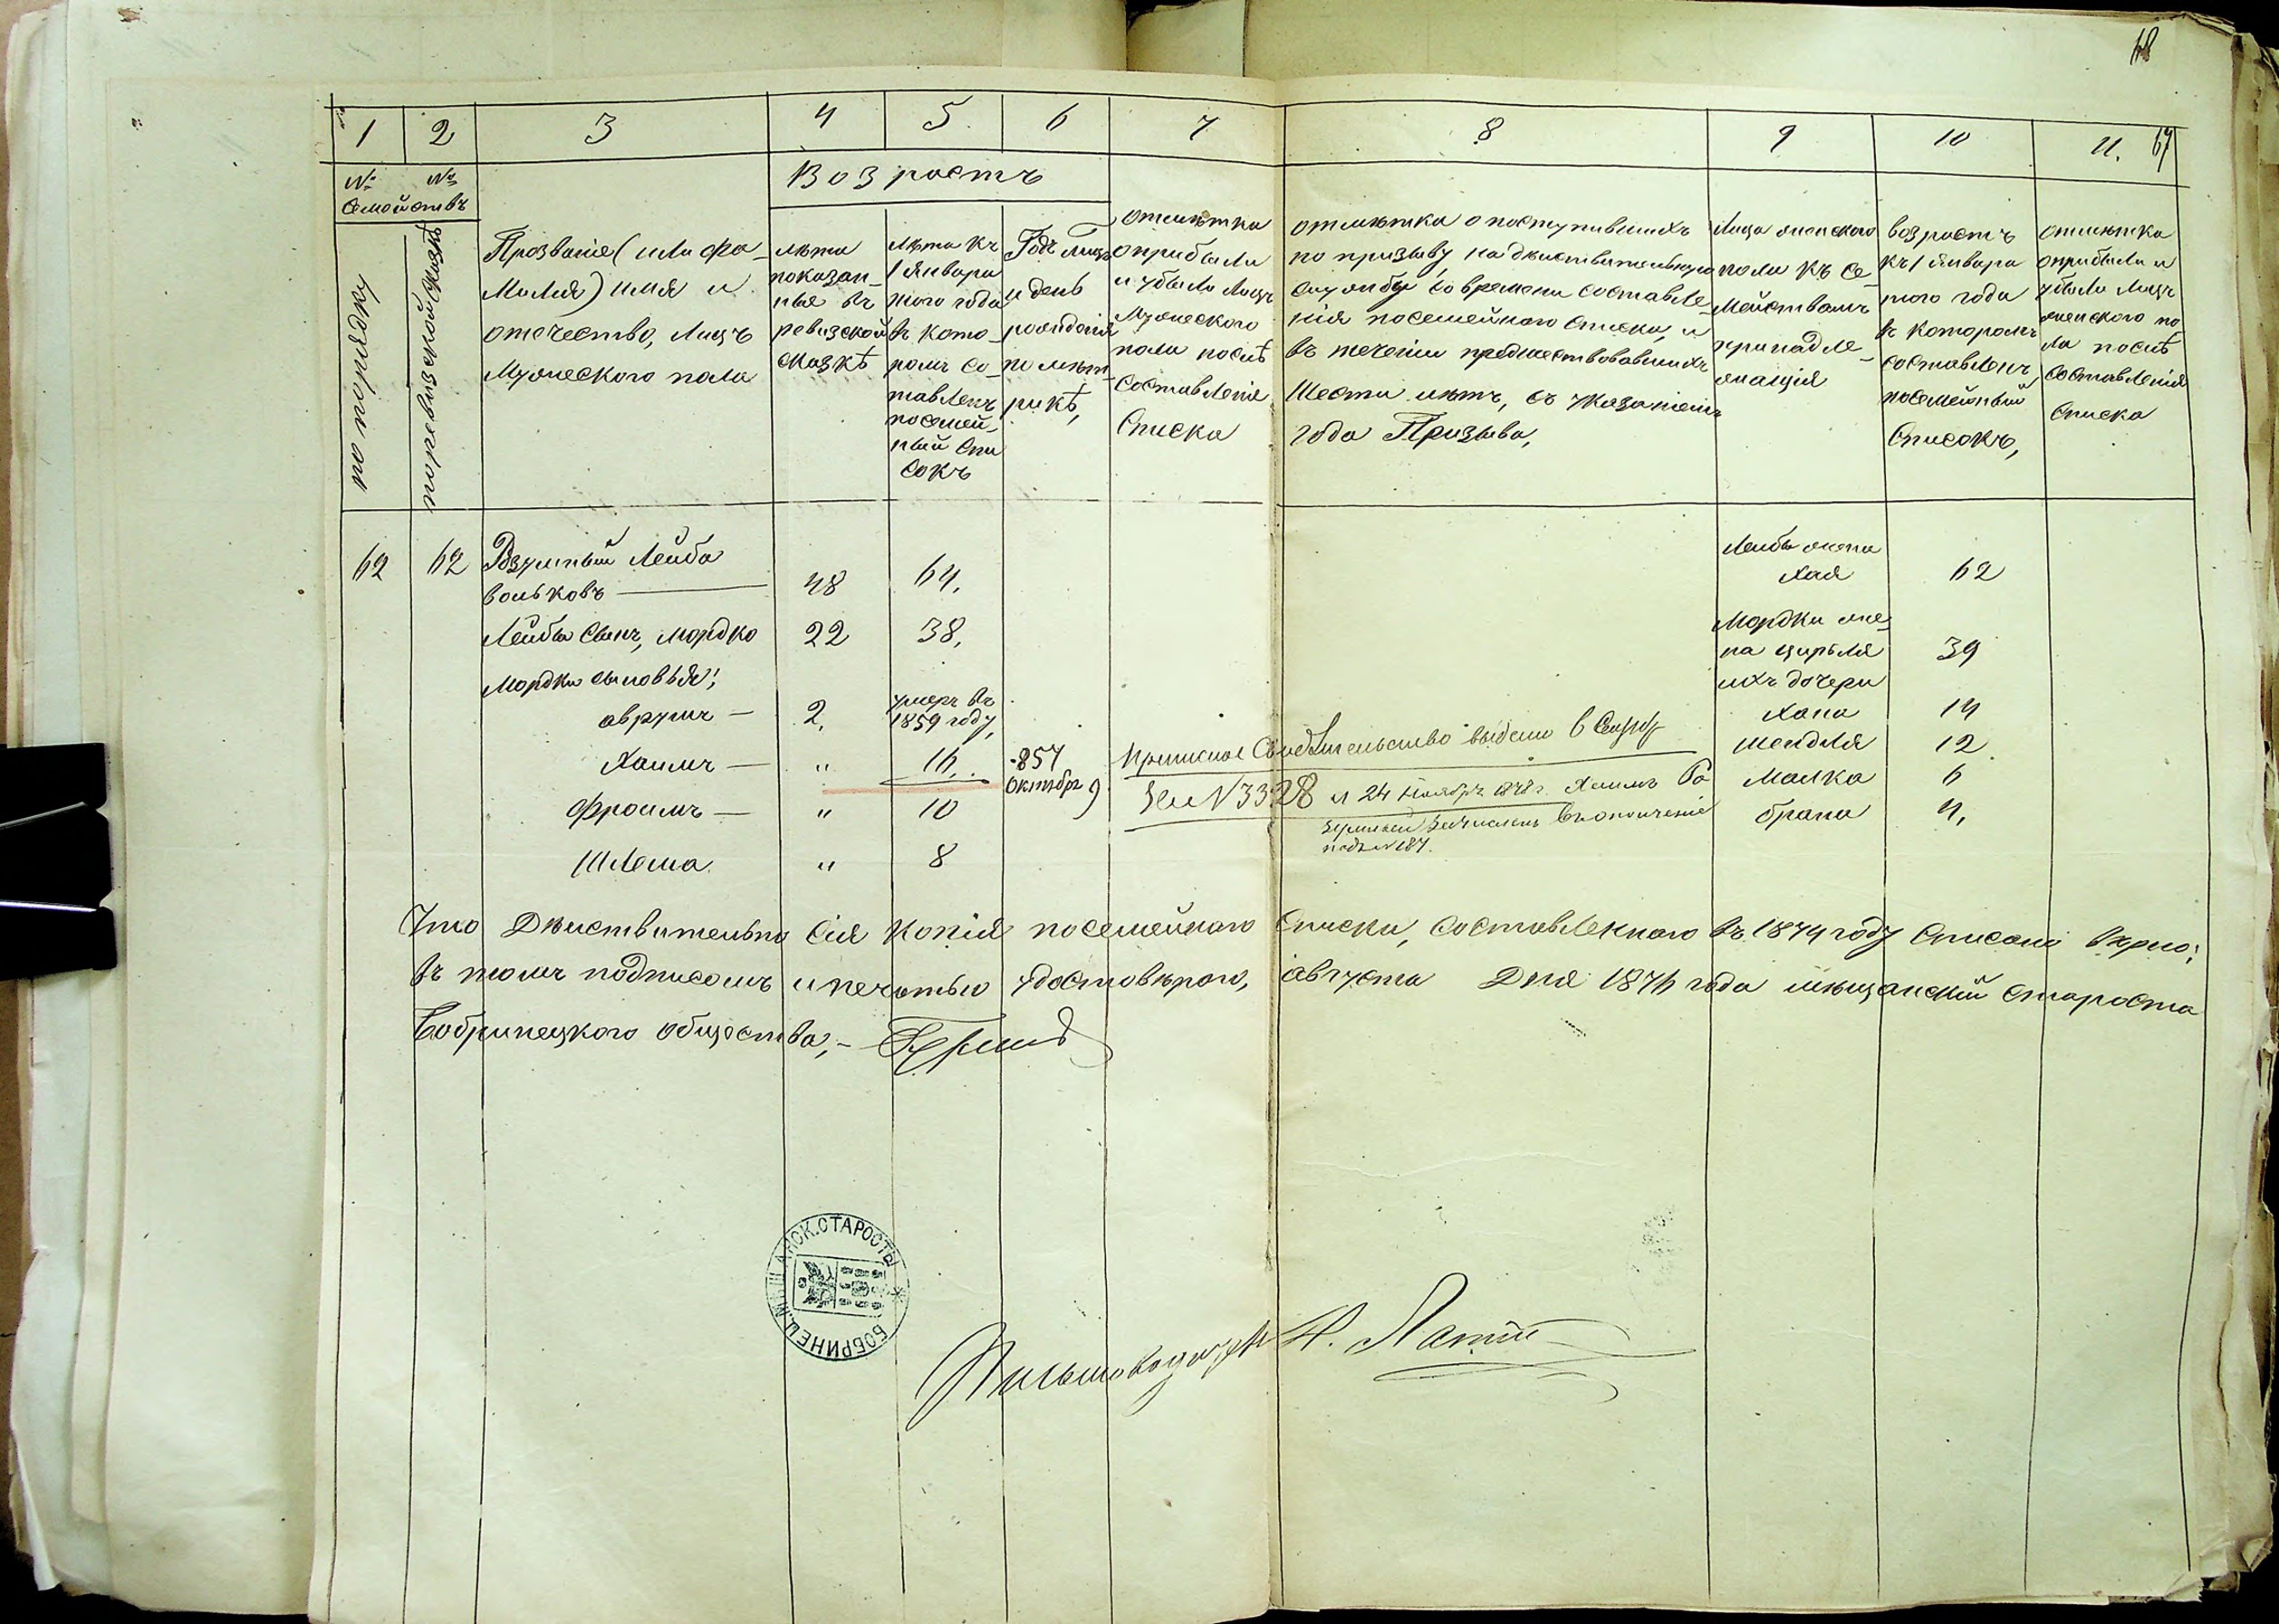 68
1 2 3 4 5. 6 7 8 9 10 11. 67
№ №
Семействъ
по порядку
по ревизской сказкѣ
Прозваніе (или фа-
милія) имя и
отечество, лицъ
мужескаго пола
Возрастъ
лѣта
показан-
ныя въ
ревизской
сказкѣ
лѣта къ
1 января
того года
въ кото-
ромъ со-
тавленъ
посемей-
ный спи
сокъ
Годъ мѣсяцъ
и день
рожденія
по мет-
рикѣ,
отмѣтка
о прибыли
и убыли лицъ
мужескаго
пола послѣ
составленія
списка
отмѣтка о поступившихъ
по призыву на дѣйствительную
службу во времени составле-
нія посемейнаго списка, и
въ теченіи предшествовавшихъ
шести лѣтъ, съ указаніемъ
года призыва,
лица женскаго
пола къ се-
мействамъ
принадле-
жащія
возрастъ
къ 1 января
того года
въ которомъ
составленъ
посемейный
списокъ,
отмѣтка
о прибыли и
убыли лицъ
женскаго по
ла послѣ
составленія
списка
62 62 Розумный Лейба
вольковъ — 48 64. Лейбы жена
Хая 62
Лейбы сынъ, Мордко 22 38. Мордки же-
на цирля 39
Мордки сыновья; ихъ дочери
аврумъ — 2. умеръ въ
1859 году, Хана 14
Хаимъ — " 16. 857
октябрь 9 Мендля 12
Приписное Свидѣтельство выдано в
за N 3328 и 24 ноября Хаимъ Ро
зумный зачисленъ въ ополченіе
подъ № 187.
Фроимъ — " 10 Малка 6
Шлема " 8 брана 4.
Что дѣйствительно сія копія посемейнаго списка, составленнаго въ 1874 году списана вѣрно;
въ томъ подписомъ и печатью удостовѣряю, августа дня 1876 года мѣщанскій староста
Бобринецкого общества,-
БОБРИНЕЦ. МѢЩАНСК. СТАРОСТЫ
Письмоводитель Н.